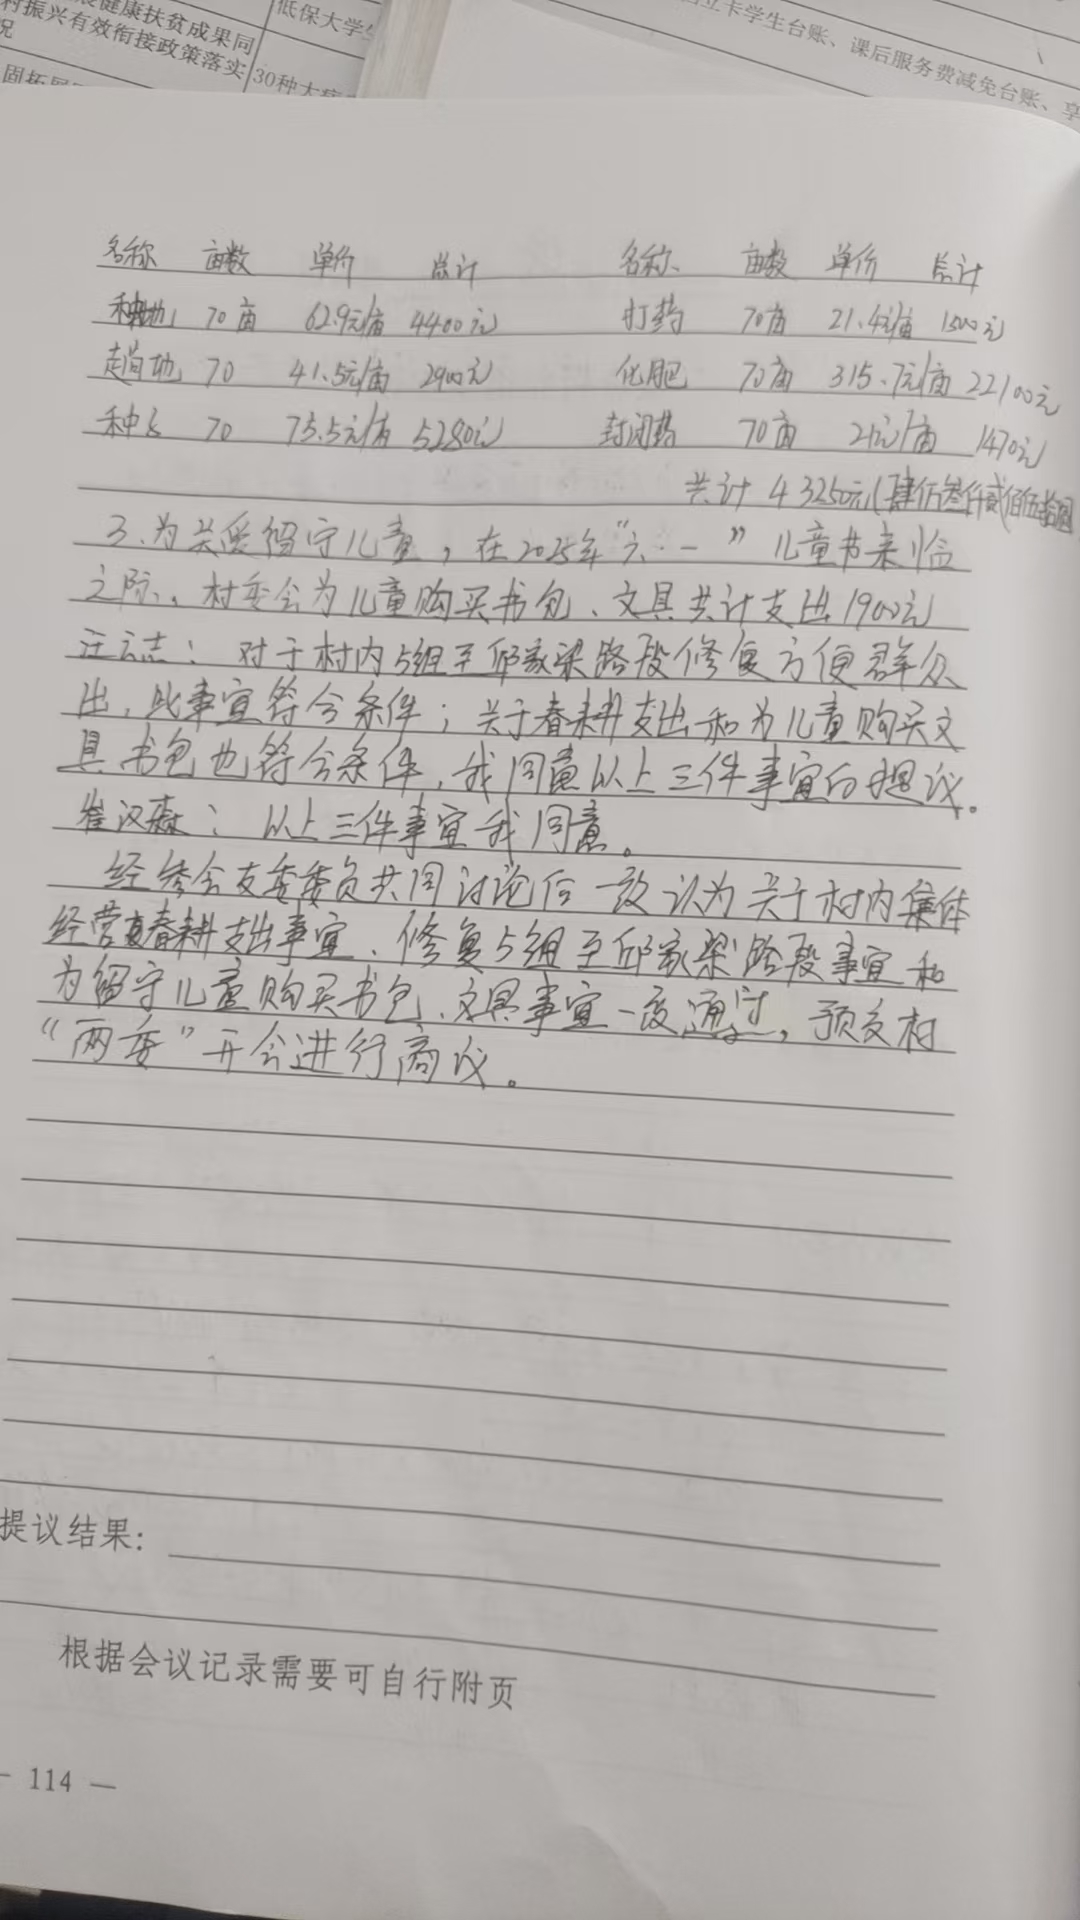 展健康扶贫成果同
村振兴有效衔接政策落实
况
固拓展
低保大学生
30种大病
立卡学生台账、课后服务费减免台账、享
名称 亩数 单价 总计 名称 亩数 单价 总计
种地 70亩 62.9元/亩 4400元 打药 70亩 21.4元/亩 1500元
趟地 70 41.5元/亩 2900元 化肥 70亩 315.7元/亩 22100元
种子 70 75.5元/亩 5280元 封闭药 70亩 21元/亩 1470元
共计43250元(肆仟叁仟贰佰伍拾圆
3.为关爱留守儿童，在2025年“六·一”儿童节来临
之际、村委会为儿童购买书包、文具共计支出1900元
汪云志：对于村内5组至邱家梁路段修复方便群众
出，此事宜符合条件；关于春耕支出和为儿童购买文
具书包也符合条件，我同意以上三件事宜的提议。
崔汉森：以上三件事宜我同意。
经参会支委委员共同讨论后一致认为关于村内集体
经营春耕支出事宜、修复5组至邱家梁路段事宜和
为留守儿童购买书包、文具事宜一致通过，预交村
“两委”开会进行商议。
提议结果：
根据会议记录需要可自行附页
— 114 —